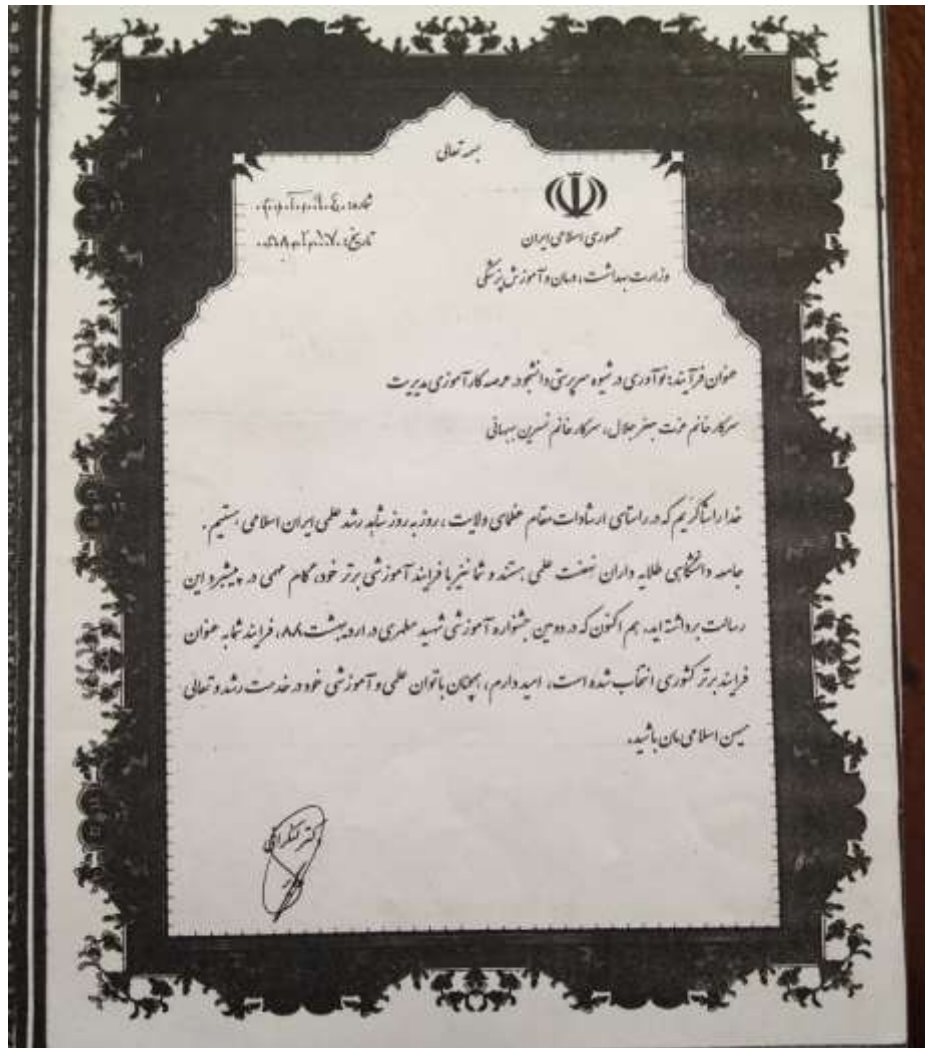 بسمه تعالی
جمهوری اسلامی ایران
وزارت بهداشت، درمان و آموزش پزشکی
شماره:
تاریخ:
عنوان فرآیند: نوآوری در شیوه سرپرستی دانشجو در عرصه کارآموزی مدیریت
سرکار خانم عزت جعفر جلال، سرکار خانم نسرین بهبهانی
خدا را شاکریم که در راستای ارشادات مقام عظمای ولایت، روز به روز شاهد رشد علمی ایران اسلامی هستیم.
جامعه دانشگاهی طلایه داران نهضت علمی هستند و شما نیز با فرایند آموزشی برتر خود، گام مهمی در پیشبرد این
رسالت برداشته اید، هم اکنون که در دومین جشنواره آموزشی شهید مطهری در اردیبهشت ۸۸، فرایند شما به عنوان
فرایند برتر کشوری انتخاب شده است، امید دارم، همچنان با توان علمی و آموزشی خود در خدمت رشد و تعالی
میهن اسلامی مان باشید.
دکتر لنکرانی